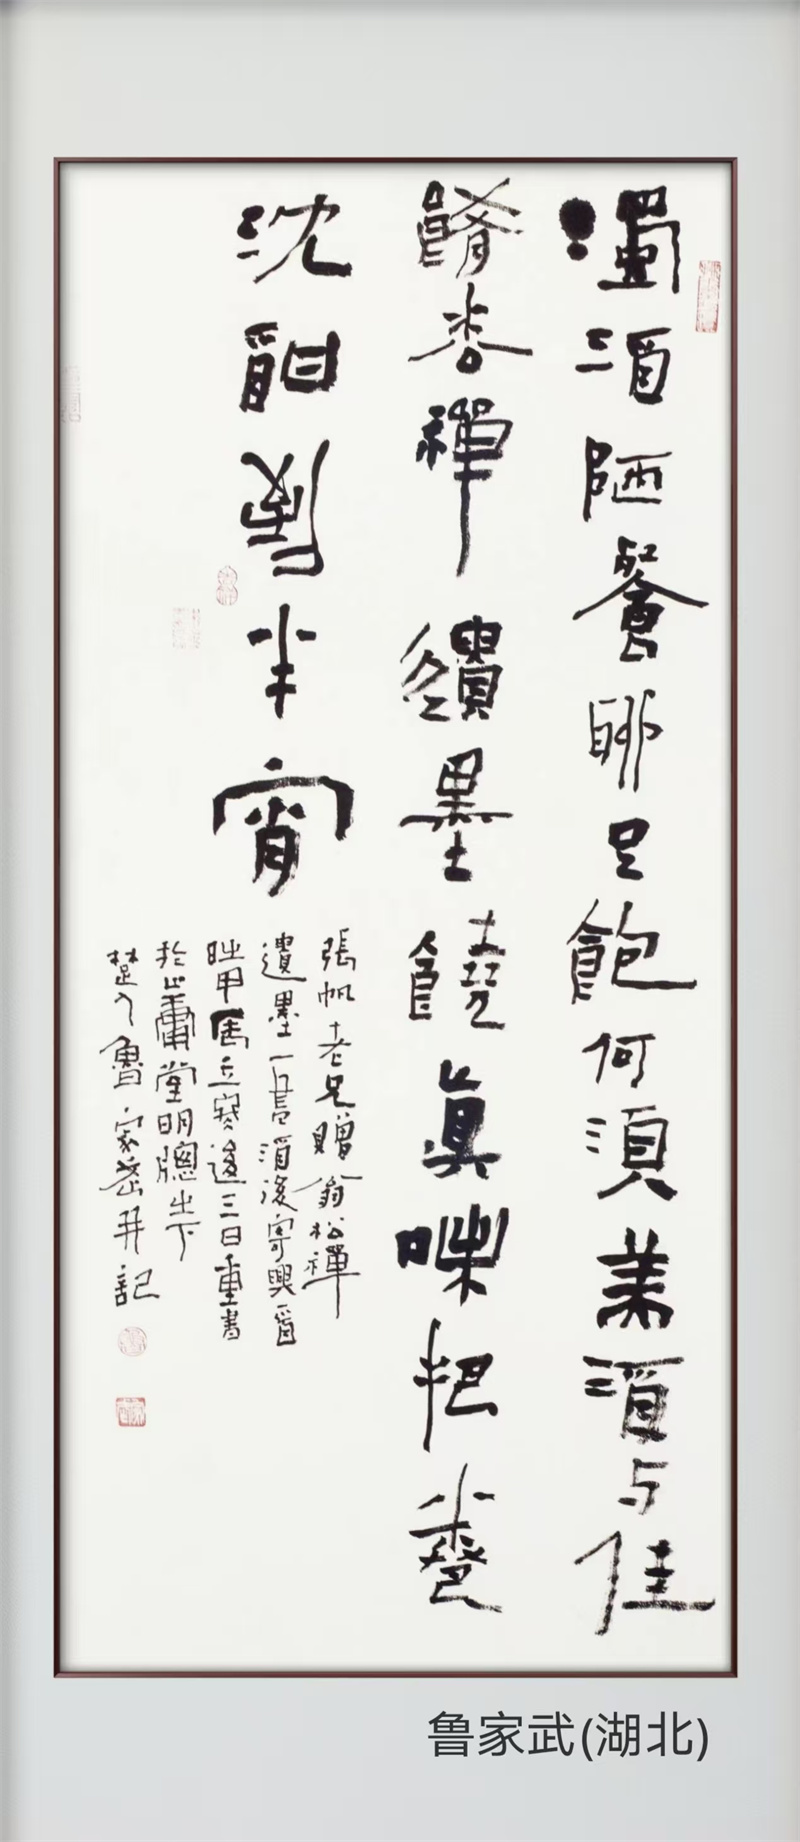 濁酒陋餐聊足飽何須美酒与佳
餚老禪殘墨饒真味把卷
沈酣到半宵
張帆老兄贈翁松禪
遺墨一卷酒後寄興
甲辰立寒後三日重書
於山雷堂明窗之下
楚人魯家武并記
鲁家武(湖北)